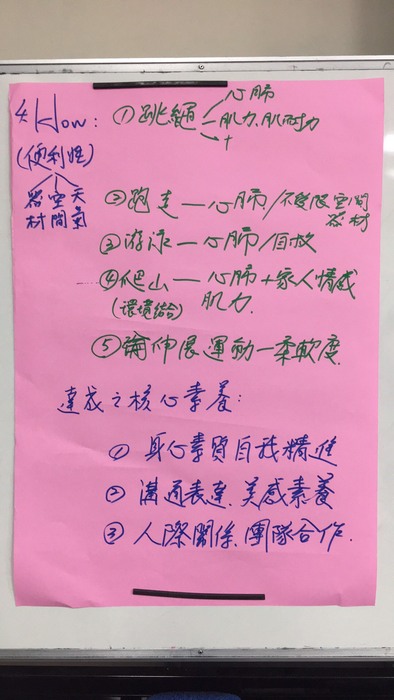 4. How:
(便利性)
器材 空間 天氣
① 跳繩 心肺
肌力、肌耐力
+
② 跑走 — 心肺/不受限空間
器材
③ 游泳 — 心肺/自救
④ 爬山 — 心肺 + 家人情感
(環境結合) 肌力
⑤ 伸展運動 — 柔軟度
達成之核心素養:
① 身心素質自我精進
② 溝通表達、美感素養
③ 人際關係、團隊合作.